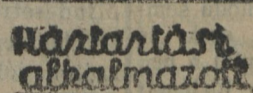 Háztartási
alkalmazott